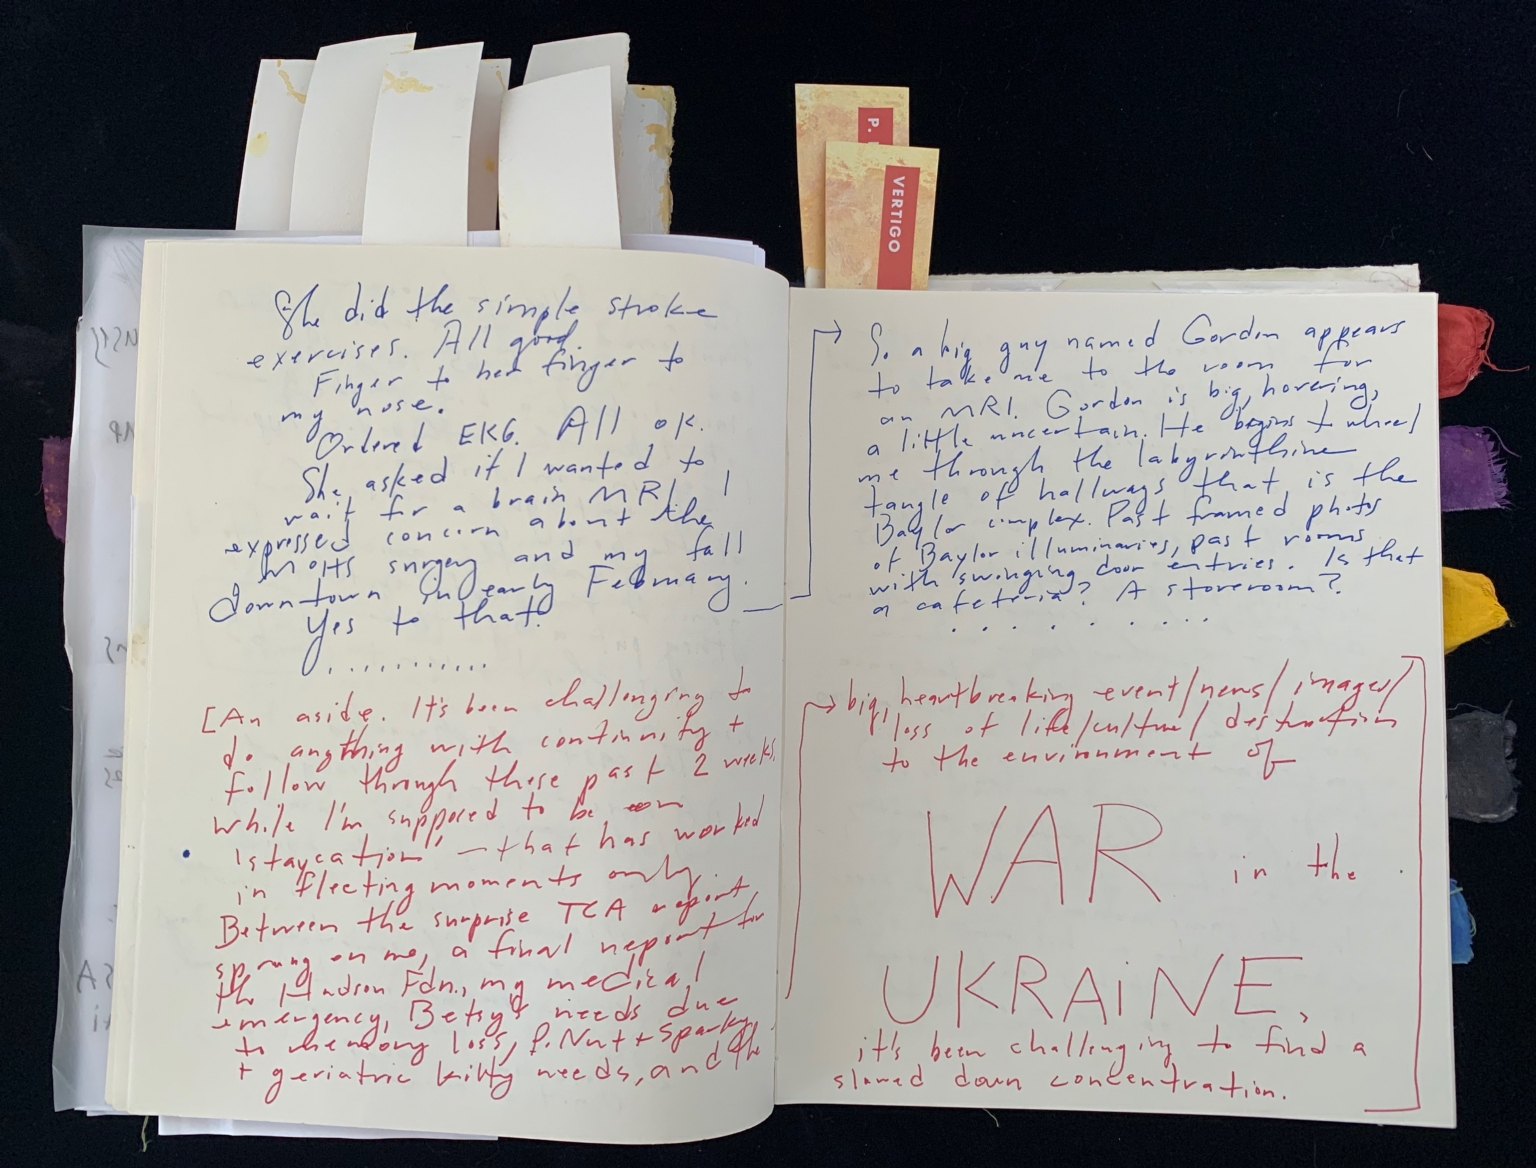 P.
VERTIGO
She did the simple stroke
exercises. All good.
Finger to her finger to
my nose.
Ordered EKG. All ok.
She asked if I wanted to
wait for a brain MRI. I
expressed concern about the
MOHS surgery and my fall
downtown in early February.
Yes to that!
...........
[An aside. It's been challenging to
do anything with continuity +
follow through these past 2 weeks,
while I'm supposed to be on
"staycation" – that has worked
in fleeting moments only.
Between the surprise TCA report
sprung on me, a final report for
the Hudson Fdn., my medical
emergency, Betsy's needs due
to memory loss, P. Nut + Sparky
+ geriatric kitty needs, and the
So a big guy named Gordon appears
to take me to the room for
an MRI. Gordon is big, hovering,
a little uncertain. He begins to wheel
me through the labyrinthine
tangle of hallways that is the
Baylor complex. Past framed photos
of Baylor illuminaries, past rooms
with swinging door entries. Is that
a cafeteria? A storeroom?
..........
big, heartbreaking event/news/images/
loss of life/culture/destruction
to the environment of
WAR in the
UKRAiNE,
it's been challenging to find a
slowed down concentration.